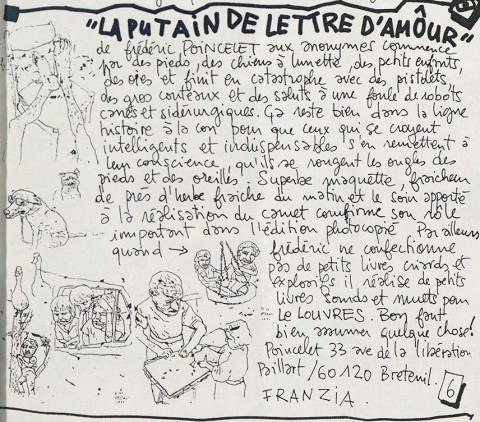 "LA PUTAIN DE LETTRE D'AMÔUR"
de frédéric POINCELET aux anonymes commence
par des pieds, des chiens à lunette, des petits enfants,
des oies et finit en catastrophe avec des pistolets,
des gros couteaux et des saluts à une foule de robots,
carrés et sidérurgiques. Ça reste bien dans la ligne
histoire à la con pour que ceux qui se croyent
intelligents et indispensables s'en remettent à
leur conscience, qu'ils se rongent les ongles des
pieds et des oreilles. Superbe maquette, fraicheur
de près d'herbe fraiche du matin et le soin apporté
à la réalisation du carnet confirme son rôle
important dans l'édition photocopié Par ailleurs
quand → frédéric ne confectionne
pas de petits livres criards et
explosifs il réalise de petits
livres sourds et muets pour
LE LOUVRES. Bon faut
bien assumer quelque chose!
Poincelet 33 ave de la libération
Paillart / 60120 Breteuil.
FRANZIA.
6